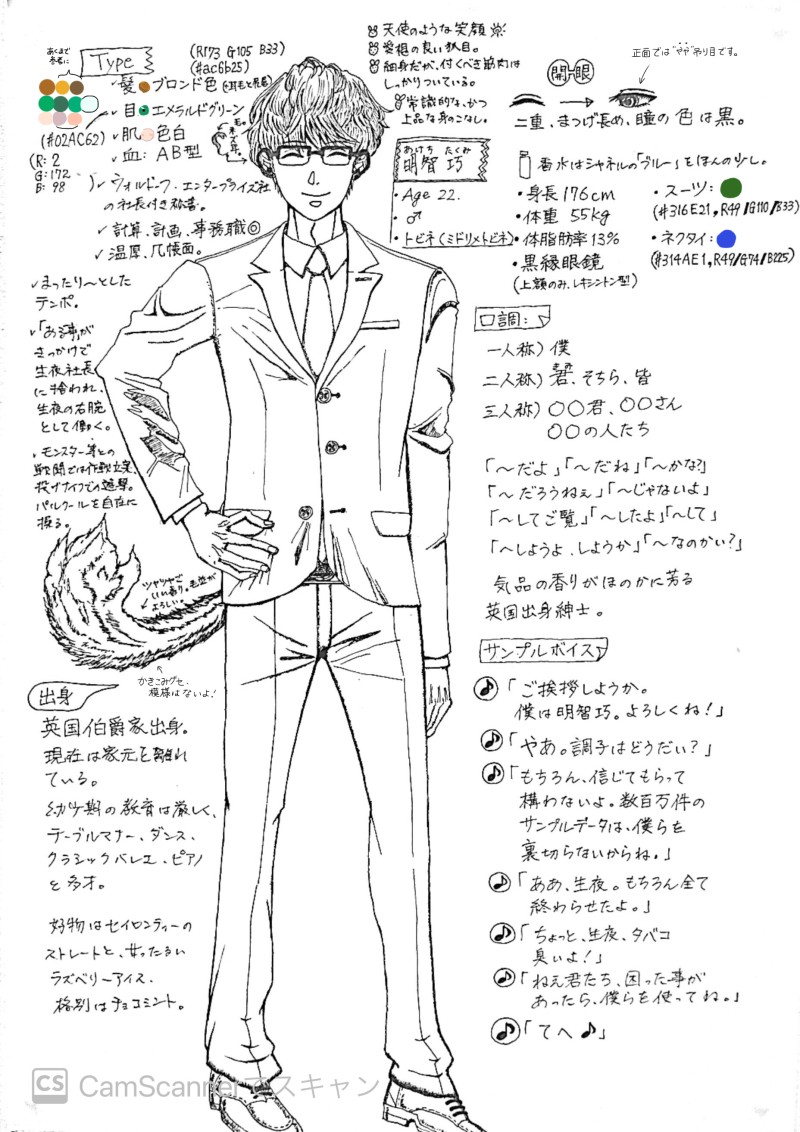 あくまで
参考に
Type
(R173 G105 B33)
(#ac6b25)
髪 ブロンド色(耳毛と尻尾)
目 エメラルドグリーン
(#02AC62)
R: 2
G: 172
B: 98
肌 色白
血: AB型
ウォルドーフ・エンタープライズ社
の社長付き秘書。
計算、計画、事務職◎
温厚、几帳面。
まったり〜とした
テンポ。
「ある事」が
きっかけで
生夜社長
に拾われ、
生夜の右腕
として働く。
モンスター等との
戦闘では作戦立案、
投げナイフでの追撃。
パルクールを自在に
操る。
ツヤツヤで
いい香り。毛並が
よろしい。
かきこみグセ、
模様はないよ!
出身
英国伯爵家出身。
現在は家元を離れ
ている。
幼少期の教育は厳しく、
テーブルマナー、ダンス、
クラシックバレエ、ピアノ
と多才。
好物はセイロンティーの
ストレートと、甘ったるい
ラズベリーアイス、
格別はチョコミント。
天使のような笑顔
愛想の良い狐目。
細身だが、付くべき筋肉は
しっかりついている。
常識的な、かつ
上品な身のこなし。
あけち たくみ
明智 巧
・Age 22.
・♂
・トビネ(ミドリメトビネ)
開眼
正面では"やや"吊り目です。
二重、まつげ長め、瞳の色は黒。
香水はシャネルの「ブルー」をほんの少し。
・身長176cm
・体重 55kg
・体脂肪率13%
・黒縁眼鏡
(上額のみ、レキシントン型)
・スーツ:
(#316E21, R49/G110/B33)
・ネクタイ:
(#314AE1, R49/G74/B225)
口調:
一人称) 僕
二人称) 君、そちら、皆
三人称) 〇〇君、〇〇さん
〇〇の人たち
「〜だよ」「〜だね」「〜かな?」
「〜だろうねぇ」「〜じゃないよ」
「〜してご覧」「〜したよ」「〜して」
「〜しようよ、しようか」「〜なのかい?」
気品の香りがほのかに芳る
英国出身紳士。
サンプルボイス
♪「ご挨拶しようか。
僕は明智巧。よろしくね!」
♪「やあ。調子はどうだい?」
♪「もちろん、信じてもらって
構わないよ。数百万件の
サンプルデータは、僕らを
裏切らないからね。」
♪「ああ、生夜。もちろん全て
終わらせたよ。」
♪「ちょっと、生夜、タバコ
臭いよ!」
♪「ねえ君たち、困った事が
あったら、僕らを使ってね。」
♪「てへ♪」
CS CamScannerでスキャン